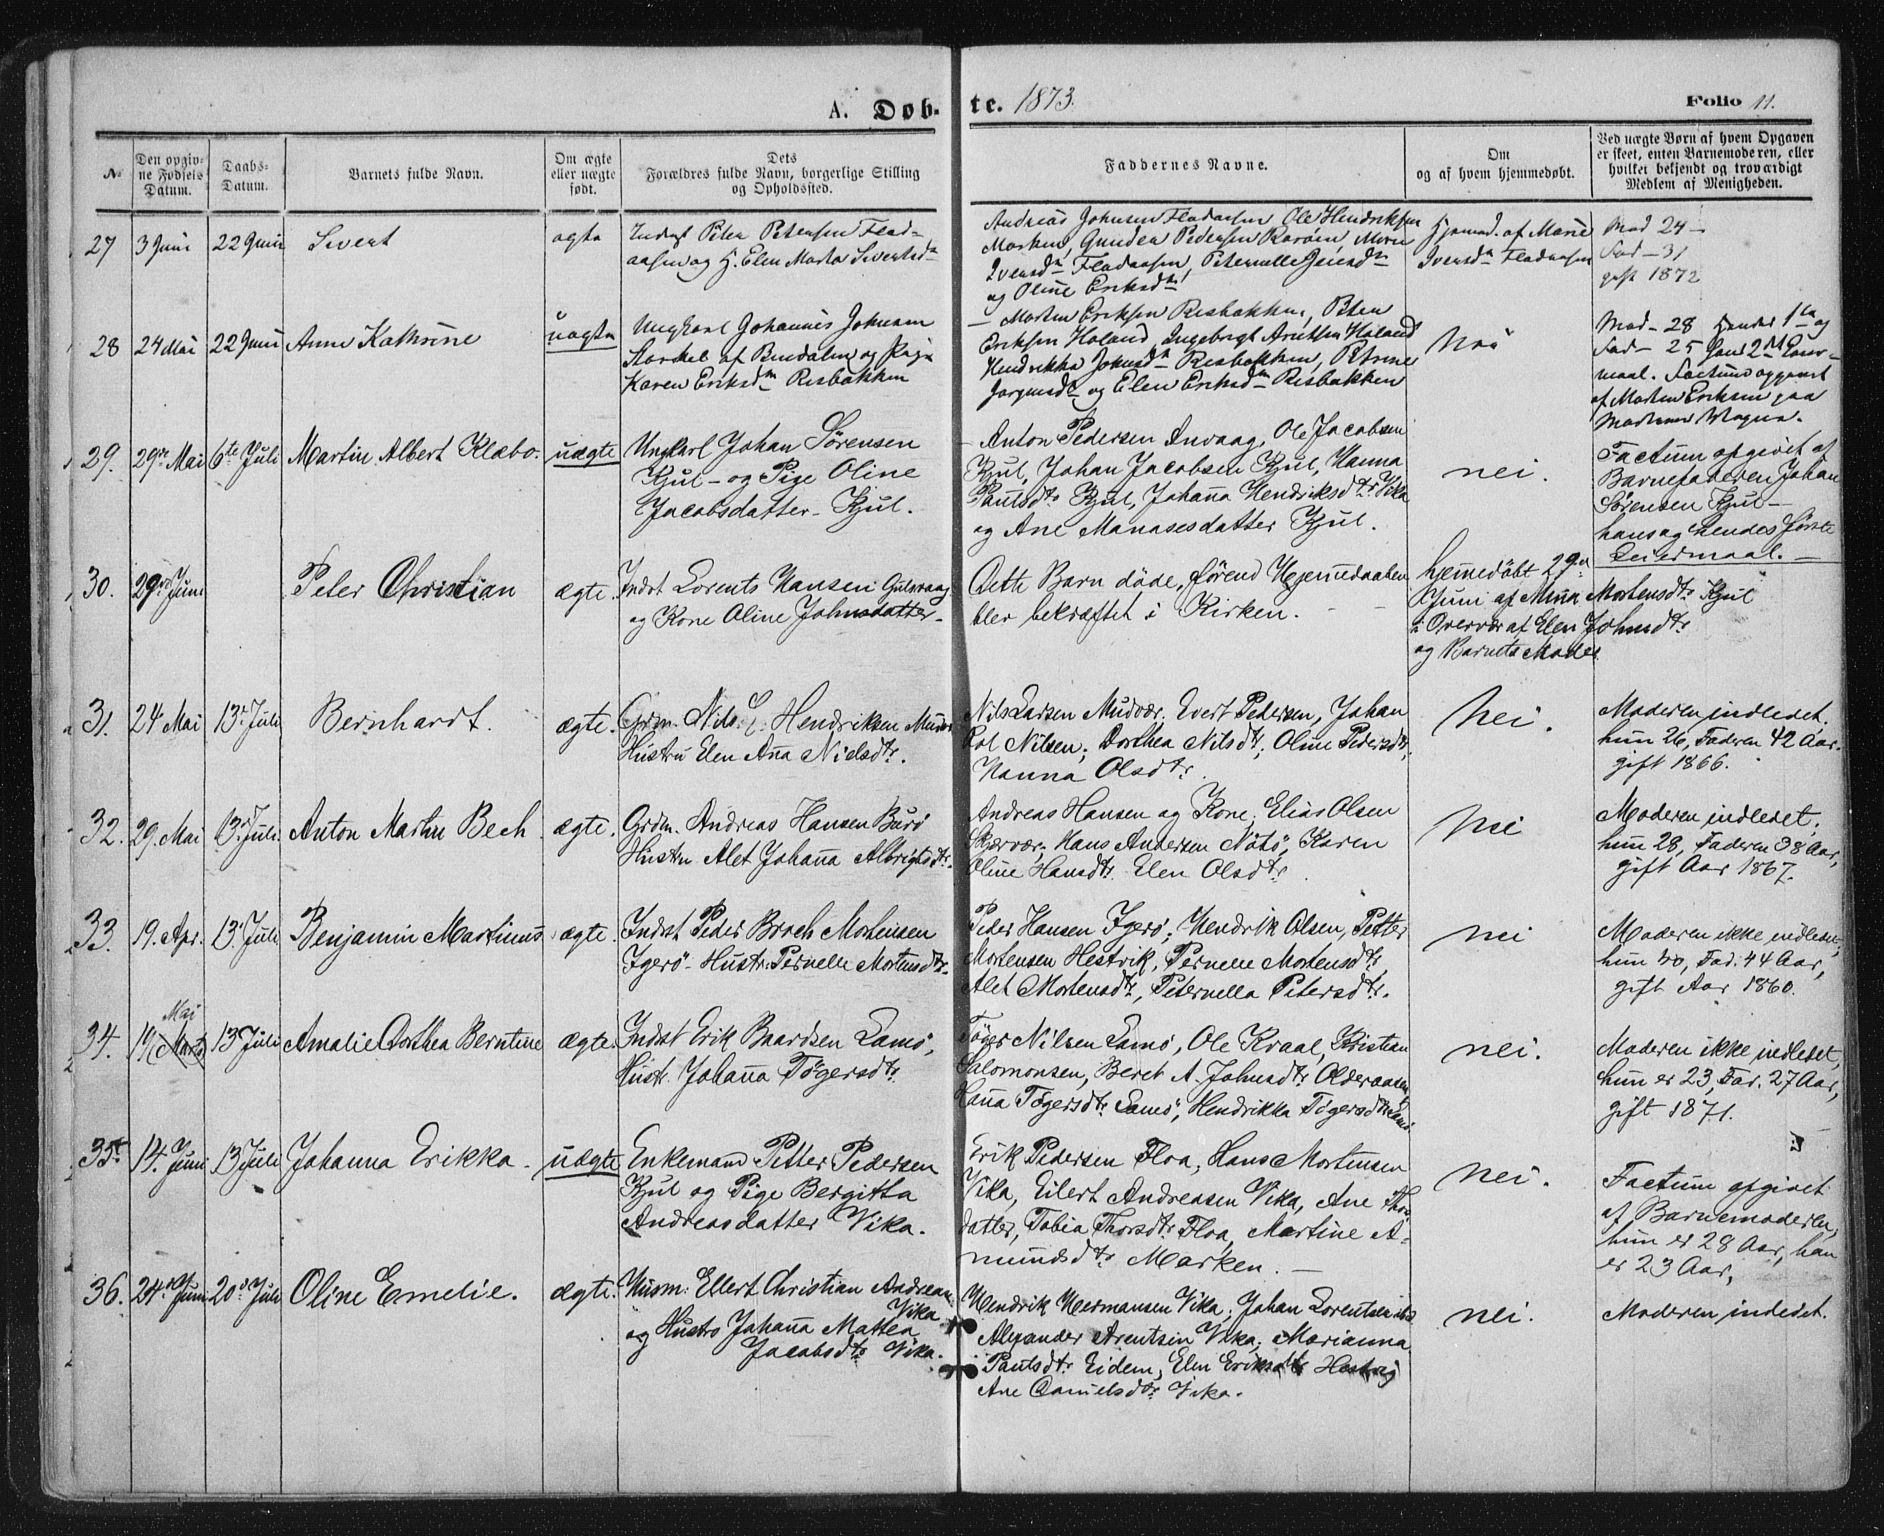 A. Døb-
te. 1873.
Folio 11.
No
Den opgiv-
ne Fødsels
Datum.
Daabs-
Datum.
Barnets fulde Navn.
Om ægte
eller uægte
født.
Dets
Forældres fulde Navn, borgerlige Stilling
og Opholdssted.
Faddernes Navne.
Om
og af hvem hjemmedøbt.
Ved uægte Børn af hvem Opgaven
er skeet, enten Barnemoderen, eller
hvilket bekjendt og troværdigt
Medlem af Menigheden.
27
3 Juni
22 Juni
Sivert
ægte
Inderst Peter Petersen Flad-
aasen og H. Elen Marta Sivertsd
Andreas Johnsen Fladaasen, Ole Hendriksen
Marken, Gunder Pedersen
Iversdtr Fladaasen, Peternelle
og Oline Eriksdtr
Hjemmed. af Marie
Iversdtr Fladaasen
Mod 24 -
Fad - 31
gift 1872
28
24 Mai
22 Juni
Anne Kathrine
uægte
Ungkarl Johannes Johnsen
af Bindalen og Pige
Karen Eriksdtr Risbakken
- Morten Eriksen Risbakken, Peter
Eriksen Holand, Ingebrigt Holand
Hendrikka Johnsdtr Risbakken, Petrine
Jørgensdtr og Elen Eriksdtr Risbakken
Nei
Mod - 28 Hendes 1ste og
Fad - 25 Hans 2det Leier-
maal. Factum opgivet
af Morten Eriksen paa
Moderens Vegne.
29.
29de Mai
6te Juli
Martin Albert Klæbo.
uægte
Ungkarl Johan Sørensen
Kjul - og Pige Oline
Jacobsdatter - Kjul.
- Anton Pedersen Anvaag, Ole Jacobsen
Kjul, Johan Jacobsen Kjul, Hanna
Paulsdtr Kjul, Johanna Hendriksdtr Vika
og Ane Manasesdatter Kjul.
nei.
Factum opgivet af
Barnefaderen Johan
Sørensen Kjul -
hans og hendes første
Leiermaal. -
30.
29de Juni
Peter Christian
ægte.
Indst Lorents Hansen Gulsvaag
og Kone Oline Johnsdatter -
Dette Barn døde, førend Hjemmedaaben
blev bekræftet i Kirken. - -
hjemmedøbt 29de
Juni af Minna Mortensdtr Kjul
i Overvær af Elen Johnsdtr
og Barnets Moder
31.
24 Mai
13de Juli
Bernhardt.
ægte.
Grdm. Nils E. Hendriksen Mudvær
Hustru Elen Anna Nielsdtr.
Nils Larsen Mudvær. Evert Pedersen, Johan
Pol Nilsen; Dorthea Nilsdtr, Oline Pedersdtr,
Hanna Olsdtr.
Nei.
Moderen indledet.
hun 26, Faderen 42 Aar.
gift 1866.
32.
29. Mai
13. Juli
Anton Martin Bech
ægte.
Grdm. Andreas Hansen Burø
Hustru Alet Johanna Albrigtsdtr.
Andreas Hansen og Kone, Elias Olsen
Skjærvær, Hans Andersen Nötö, Karen
Oline Hansdtr. Elen Olsdtr.
Nei
Moderen indledet,
hun 28, Faderen 38 Aar,
gift Aar 1867.
33.
19. Apr.
13. Juli
Benjamin Martinus
ægte.
Indst Peder Broch Mortensen
Ygerö - Hustr. Pernelle Mortensdtr.
Peder Hansen Ygerö; Hendrik Olsen, Petter
Mortensen Hestvik, Pernelle Mortensdtr,
Alet Mortensdtr, Peternella Petersdtr.
nei
Moderen ikke indledet,
hun 40, Fad. 44 Aar,
gift Aar 1860.
34.
19/ Marts
Mai
13 Juli
Amalie Dorthea Berntine
ægte.
Indst Erik Baardsen Lamö,
Hustr. Johanna Tøgersdtr.
Tøger Nilsen Lamö, Ole Kraal, Kristian
Salomonsen, Beret A. Johnsdtr Olderaasen
Hanna Tøgersdtr. Lamö, Hendrikka Tøgersdtr Lamö
nei.
Moderen ikke indledet,
hun er 23, Far. 27 Aar,
gift 1871.
35.
14. Juni
13 Juli
Johanna Erikka.
uægte
Enkemand Petter Pedersen
Kjul og Pige Bergitta
Andreasdatter Vika.
Erik Pedersen Floa, Hans Mortensen
Vika, Eilert Andreasen Vika, Ane Thors
datter, Tobia Thorsdtr. Floa, Martine A-
mundsdtr Marken. -
nei.
Factum opgivet
af Barnemoderen,
hun er 28 Aar, han
er 23 Aar,
36.
24de Juni
20de Juli
Oline Emelie.
ægte.
Husm. Ellert Christian Andreasen
Vika
og Hustr Johanna Mattea
Jacobsdtr Vika.
Hendrik Hermansen Vika, Johan Lorentsen ibd
Alexander Arentsen Vika, Marianna
Paulsdtr. Eidem, Elen Eriksdtr Hestvig
Ane Danielsdtr. Vika.
nei.
Moderen indledet.